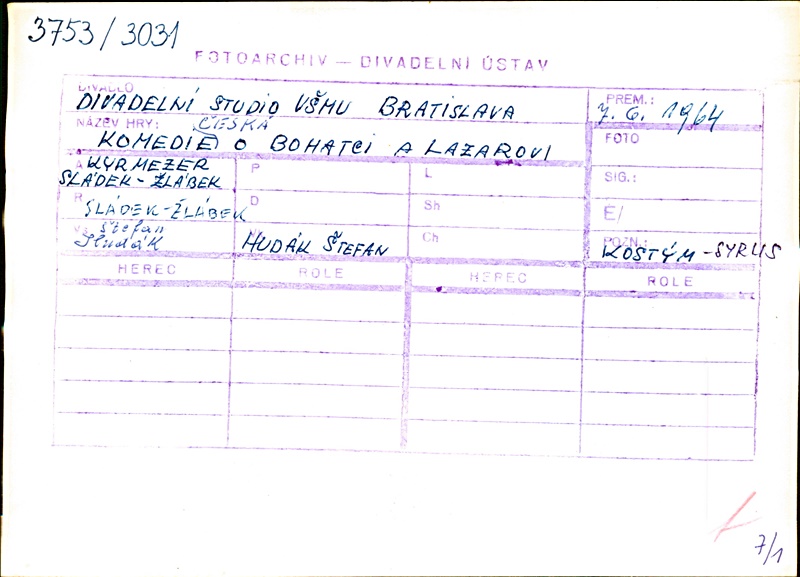 3753/3031
FOTOARCHIV — DIVADELNÍ ÚSTAV
DIVADLO
DIVADELNÍ STUDIO VŠMU BRATISLAVA
PREM.:
7. 6. 1964
NÁZEV HRY: ČESKÁ
KOMEDIE O BOHATCI A LAZAROVI
FOTO
A KYRMEZER
SLÁDEK-ŽLÁBEK
P
L
SIG.:
R SLÁDEK-ŽLÁBEK
D
Sh
E/
Štefan
Hudák
HUDÁK ŠTEFAN
Ch
POZN.:
KOSTÝM - SYRUS
HEREC ROLE HEREC ROLE
7/1